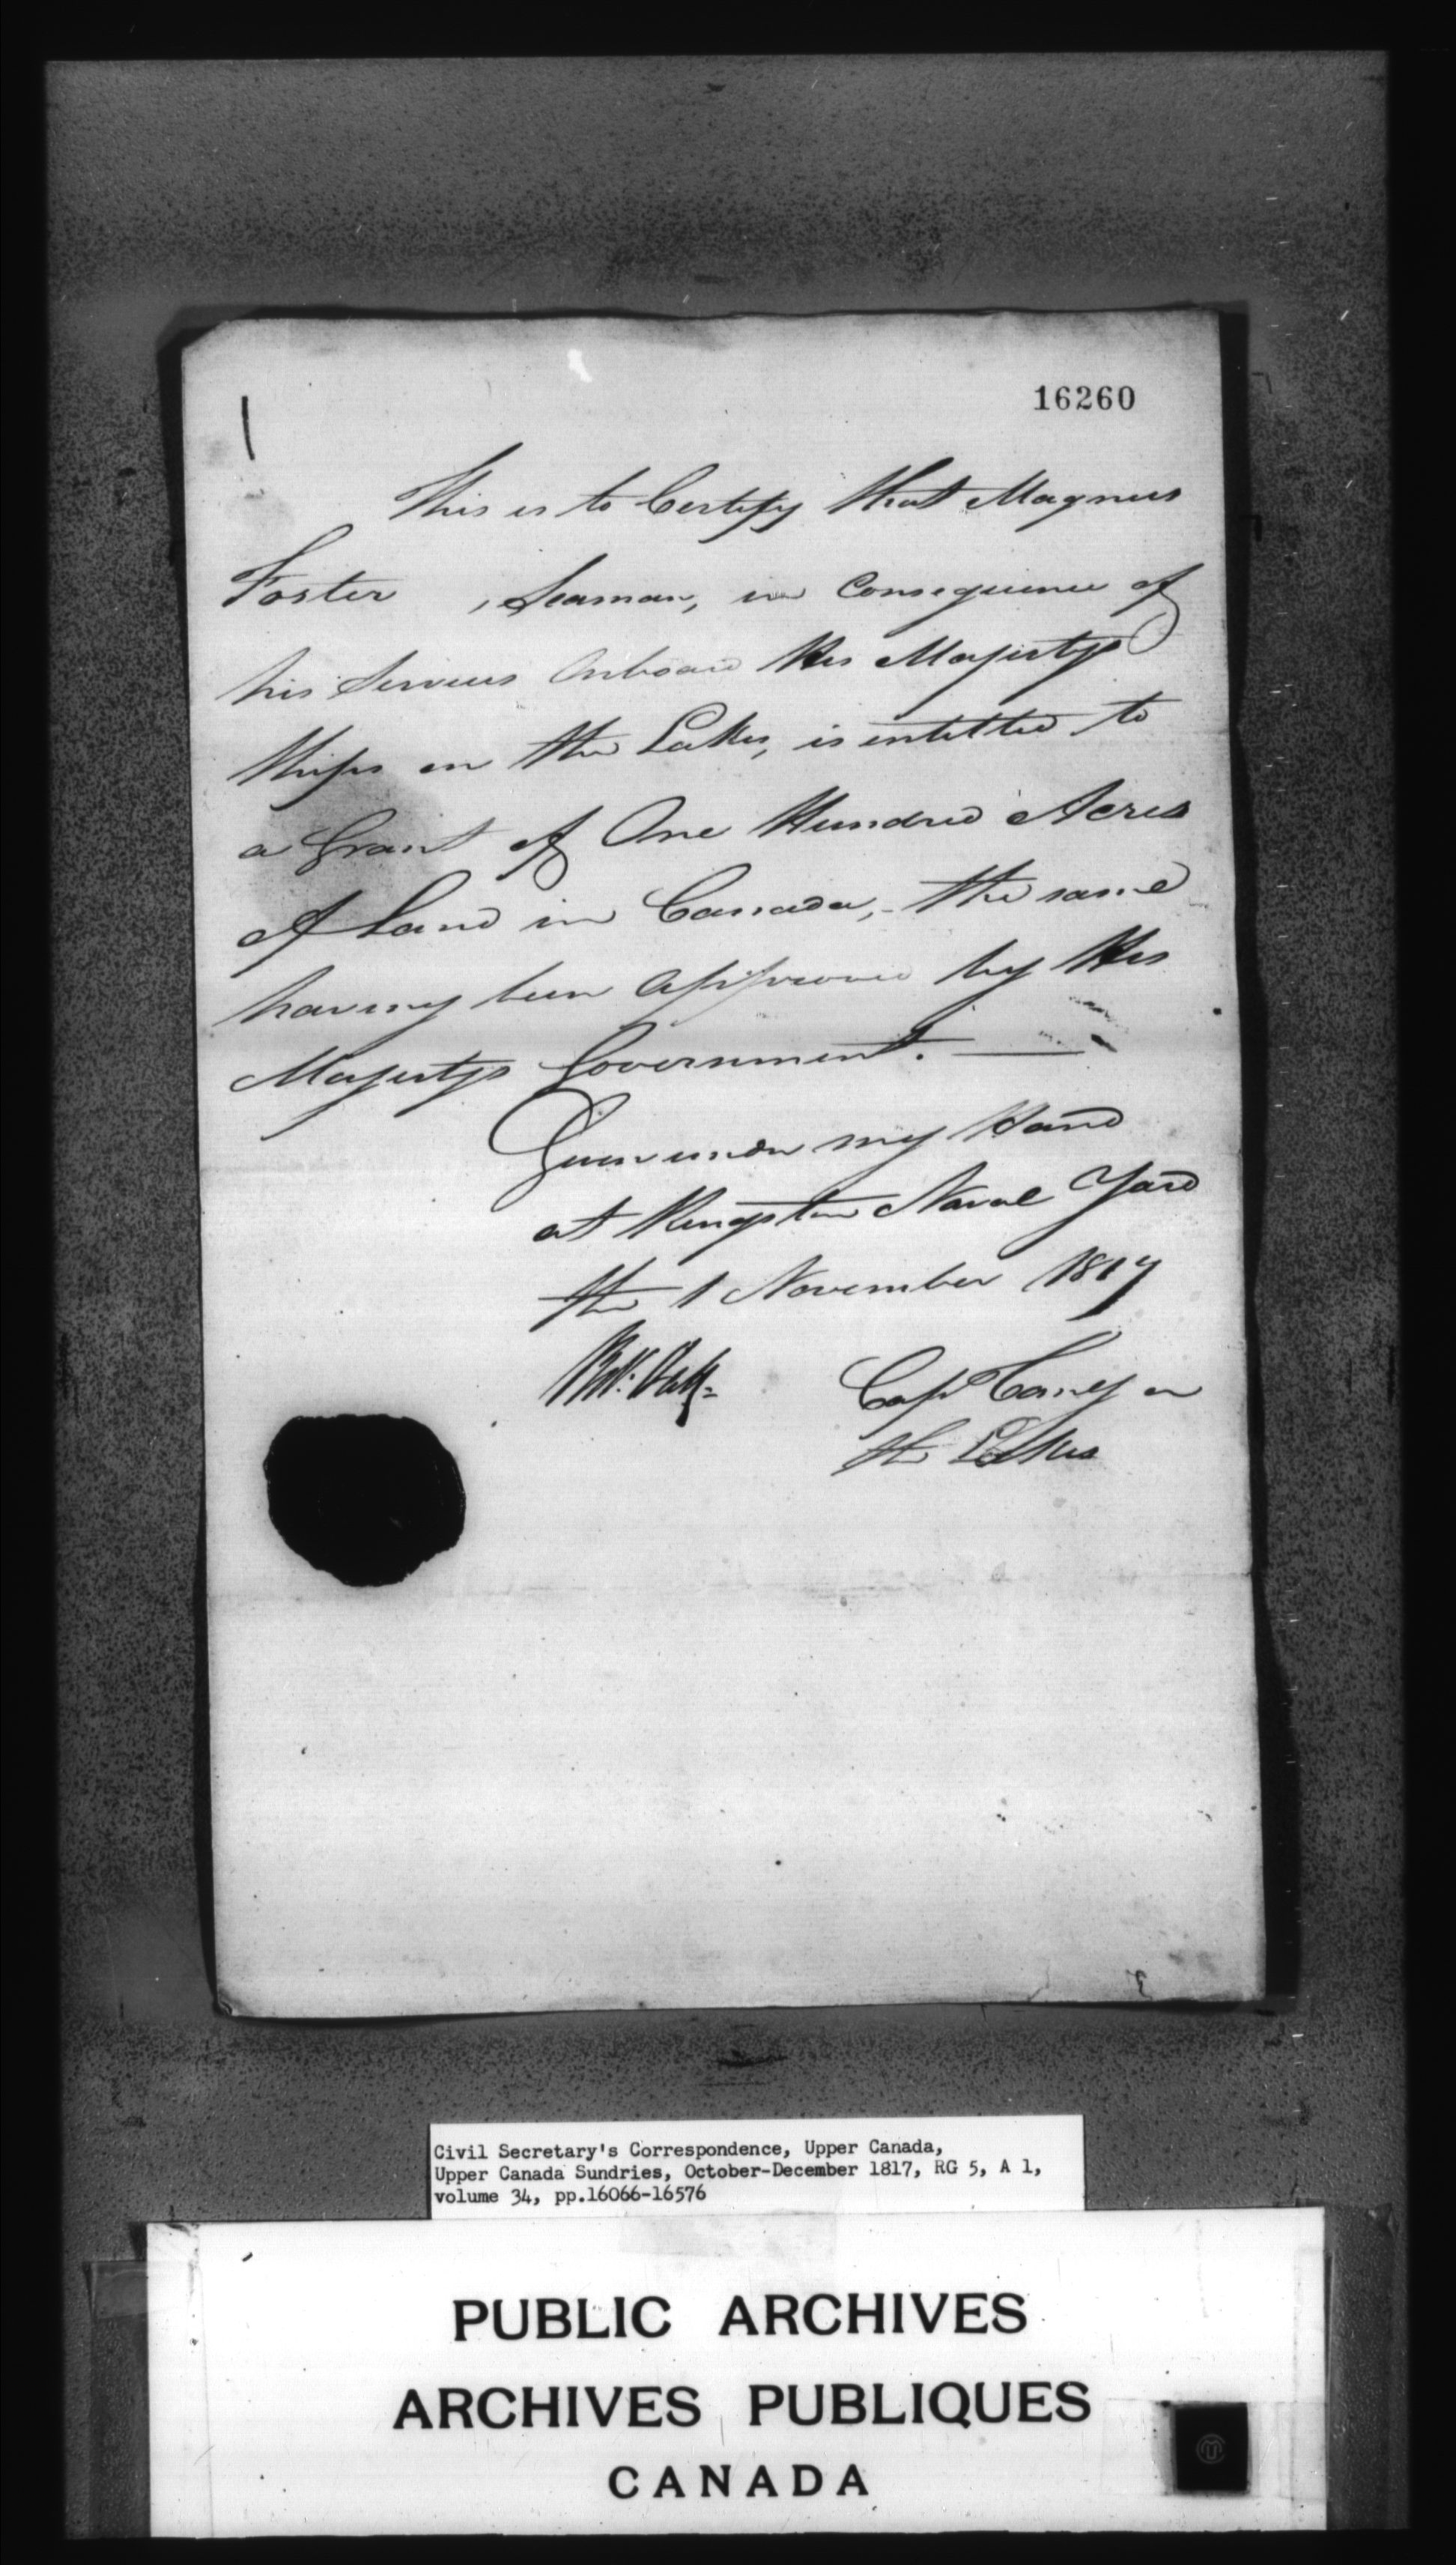 16260
This is to Certify that Magnus
Foster , Seaman, in Consequence of
his Services Onboard His Majestys
Ships on the Lakes, is entitled to
a Grant of One Hundred Acres
of Land in Canada,- the same
having been Approved by His
Majestys Government.
Given under my Hand
at Kingston Naval Yard
the 1 November 1817
Robt: Hall= Capt Comg on
the Lakes
Civil Secretary's Correspondence, Upper Canada,
Upper Canada Sundries, October-December 1817, RG 5, A 1,
volume 34, pp.16066-16576
PUBLIC ARCHIVES
ARCHIVES PUBLIQUES
CANADA